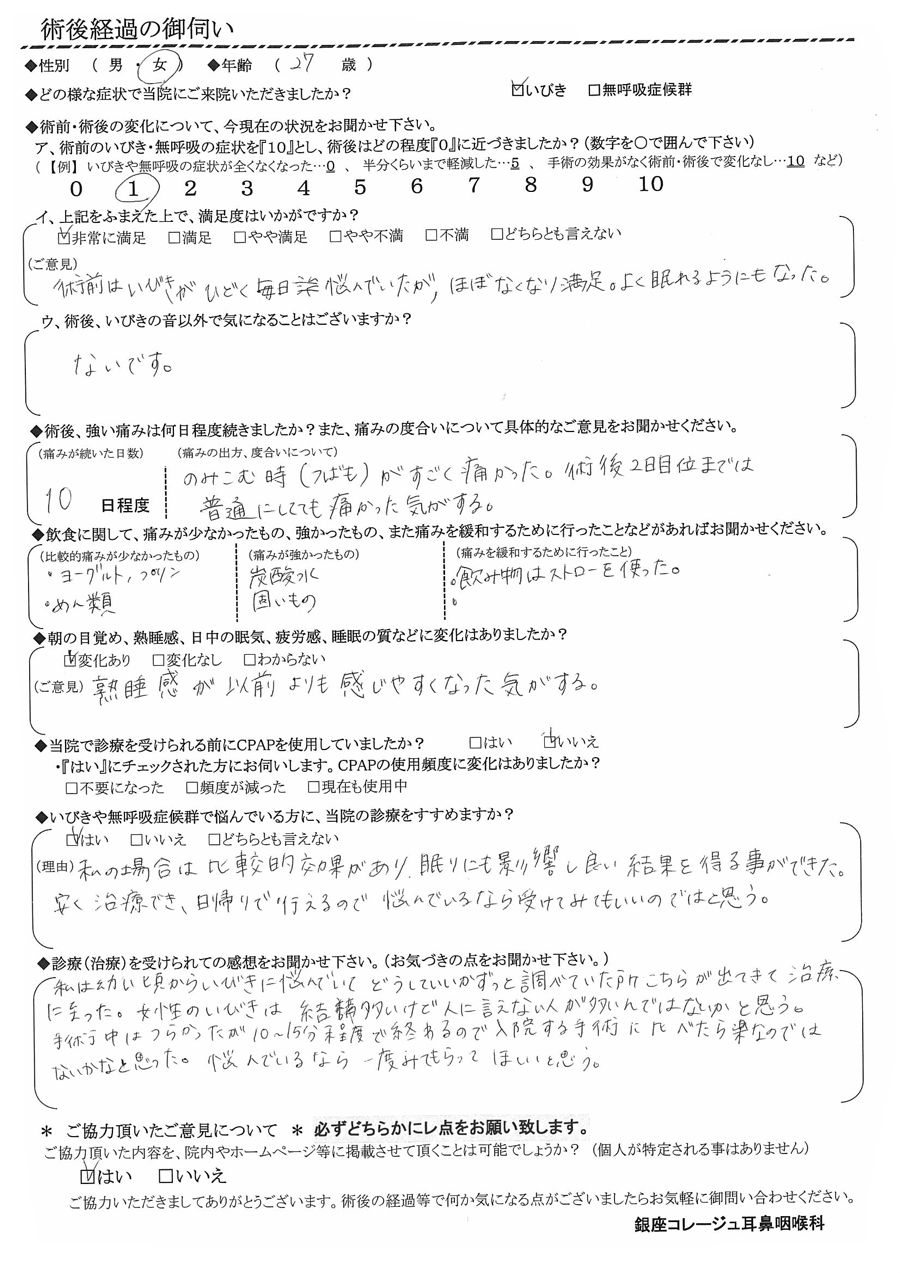 術後経過の御伺い
◆性別 ( 男 ・ 女 ) ◆年齢 ( 27 歳 )
◆どの様な症状で当院にご来院いただきましたか? ☑いびき □無呼吸症候群
◆術前・術後の変化について、今現在の状況をお聞かせ下さい。
ア、術前のいびき・無呼吸の症状を『10』とし、術後はどの程度『0』に近づきましたか?(数字を○で囲んで下さい)
(【例】いびきや無呼吸の症状が全くなくなった…0 、 半分くらいまで軽減した…5 、 手術の効果がなく術前・術後で変化なし…10 など)
0 1 2 3 4 5 6 7 8 9 10
イ、上記をふまえた上で、満足度はいかがですか?
☑非常に満足 □満足 □やや満足 □やや不満 □不満 □どちらとも言えない
(ご意見)
術前はいびきがひどく毎日悩んでいたが, ほぼなくなり満足。よく眠れるようにもなった。
ウ、術後、いびきの音以外で気になることはございますか?
ないです。
◆術後、強い痛みは何日程度続きましたか?また、痛みの度合いについて具体的なご意見をお聞かせください。
(痛みが続いた日数) (痛みの出方、度合いについて)
のみこむ時(つばも)がすごく痛かった。術後2日目位までは
10 日程度 普通にしてても痛かった気がする。
◆飲食に関して、痛みが少なかったもの、強かったもの、また痛みを緩和するために行ったことなどがあればお聞かせください。
(比較的痛みが少なかったもの) (痛みが強かったもの) (痛みを緩和するために行ったこと)
・ヨーグルト,プリン 炭酸水 。飲み物はストローを使った。
・めん類 固いもの 。
◆朝の目覚め、熟睡感、日中の眠気、疲労感、睡眠の質などに変化はありましたか?
☑変化あり □変化なし □わからない
(ご意見) 熟睡感が以前よりも感じやすくなった気がする。
◆当院で診療を受けられる前にCPAPを使用していましたか? □はい ☑いいえ
・『はい』にチェックされた方にお伺いします。CPAPの使用頻度に変化はありましたか?
□不要になった □頻度が減った □現在も使用中
◆いびきや無呼吸症候群で悩んでいる方に、当院の診療をすすめますか?
☑はい □いいえ □どちらとも言えない
(理由) 私の場合は比較的効果があり、眠りにも影響し良い結果を得る事ができた。
安く治療でき、日帰りで行えるので悩んでいるなら受けてみてもいいのではと思う。
◆診療(治療)を受けられての感想をお聞かせ下さい。(お気づきの点をお聞かせ下さい。)
私は幼い頃からいびきに悩んでいてどうしていいかずっと調べていた所こちらが出てきて治療
に至った。女性のいびきは結構多いけど人に言えない人が多いんではないかと思う。
手術中はつらかったが10〜15分程度で終わるので入院する手術に比べたら楽なのでは
ないかなと思った。悩んでいるなら一度みてもらってほしいと思う。
* ご協力頂いたご意見について * 必ずどちらかにレ点をお願い致します。
ご協力頂いた内容を、院内やホームページ等に掲載させて頂くことは可能でしょうか? (個人が特定される事はありません)
☑はい □いいえ
ご協力いただきましてありがとうございます。術後の経過等で何か気になる点がございましたらお気軽に御問い合わせください。
銀座コレージュ耳鼻咽喉科